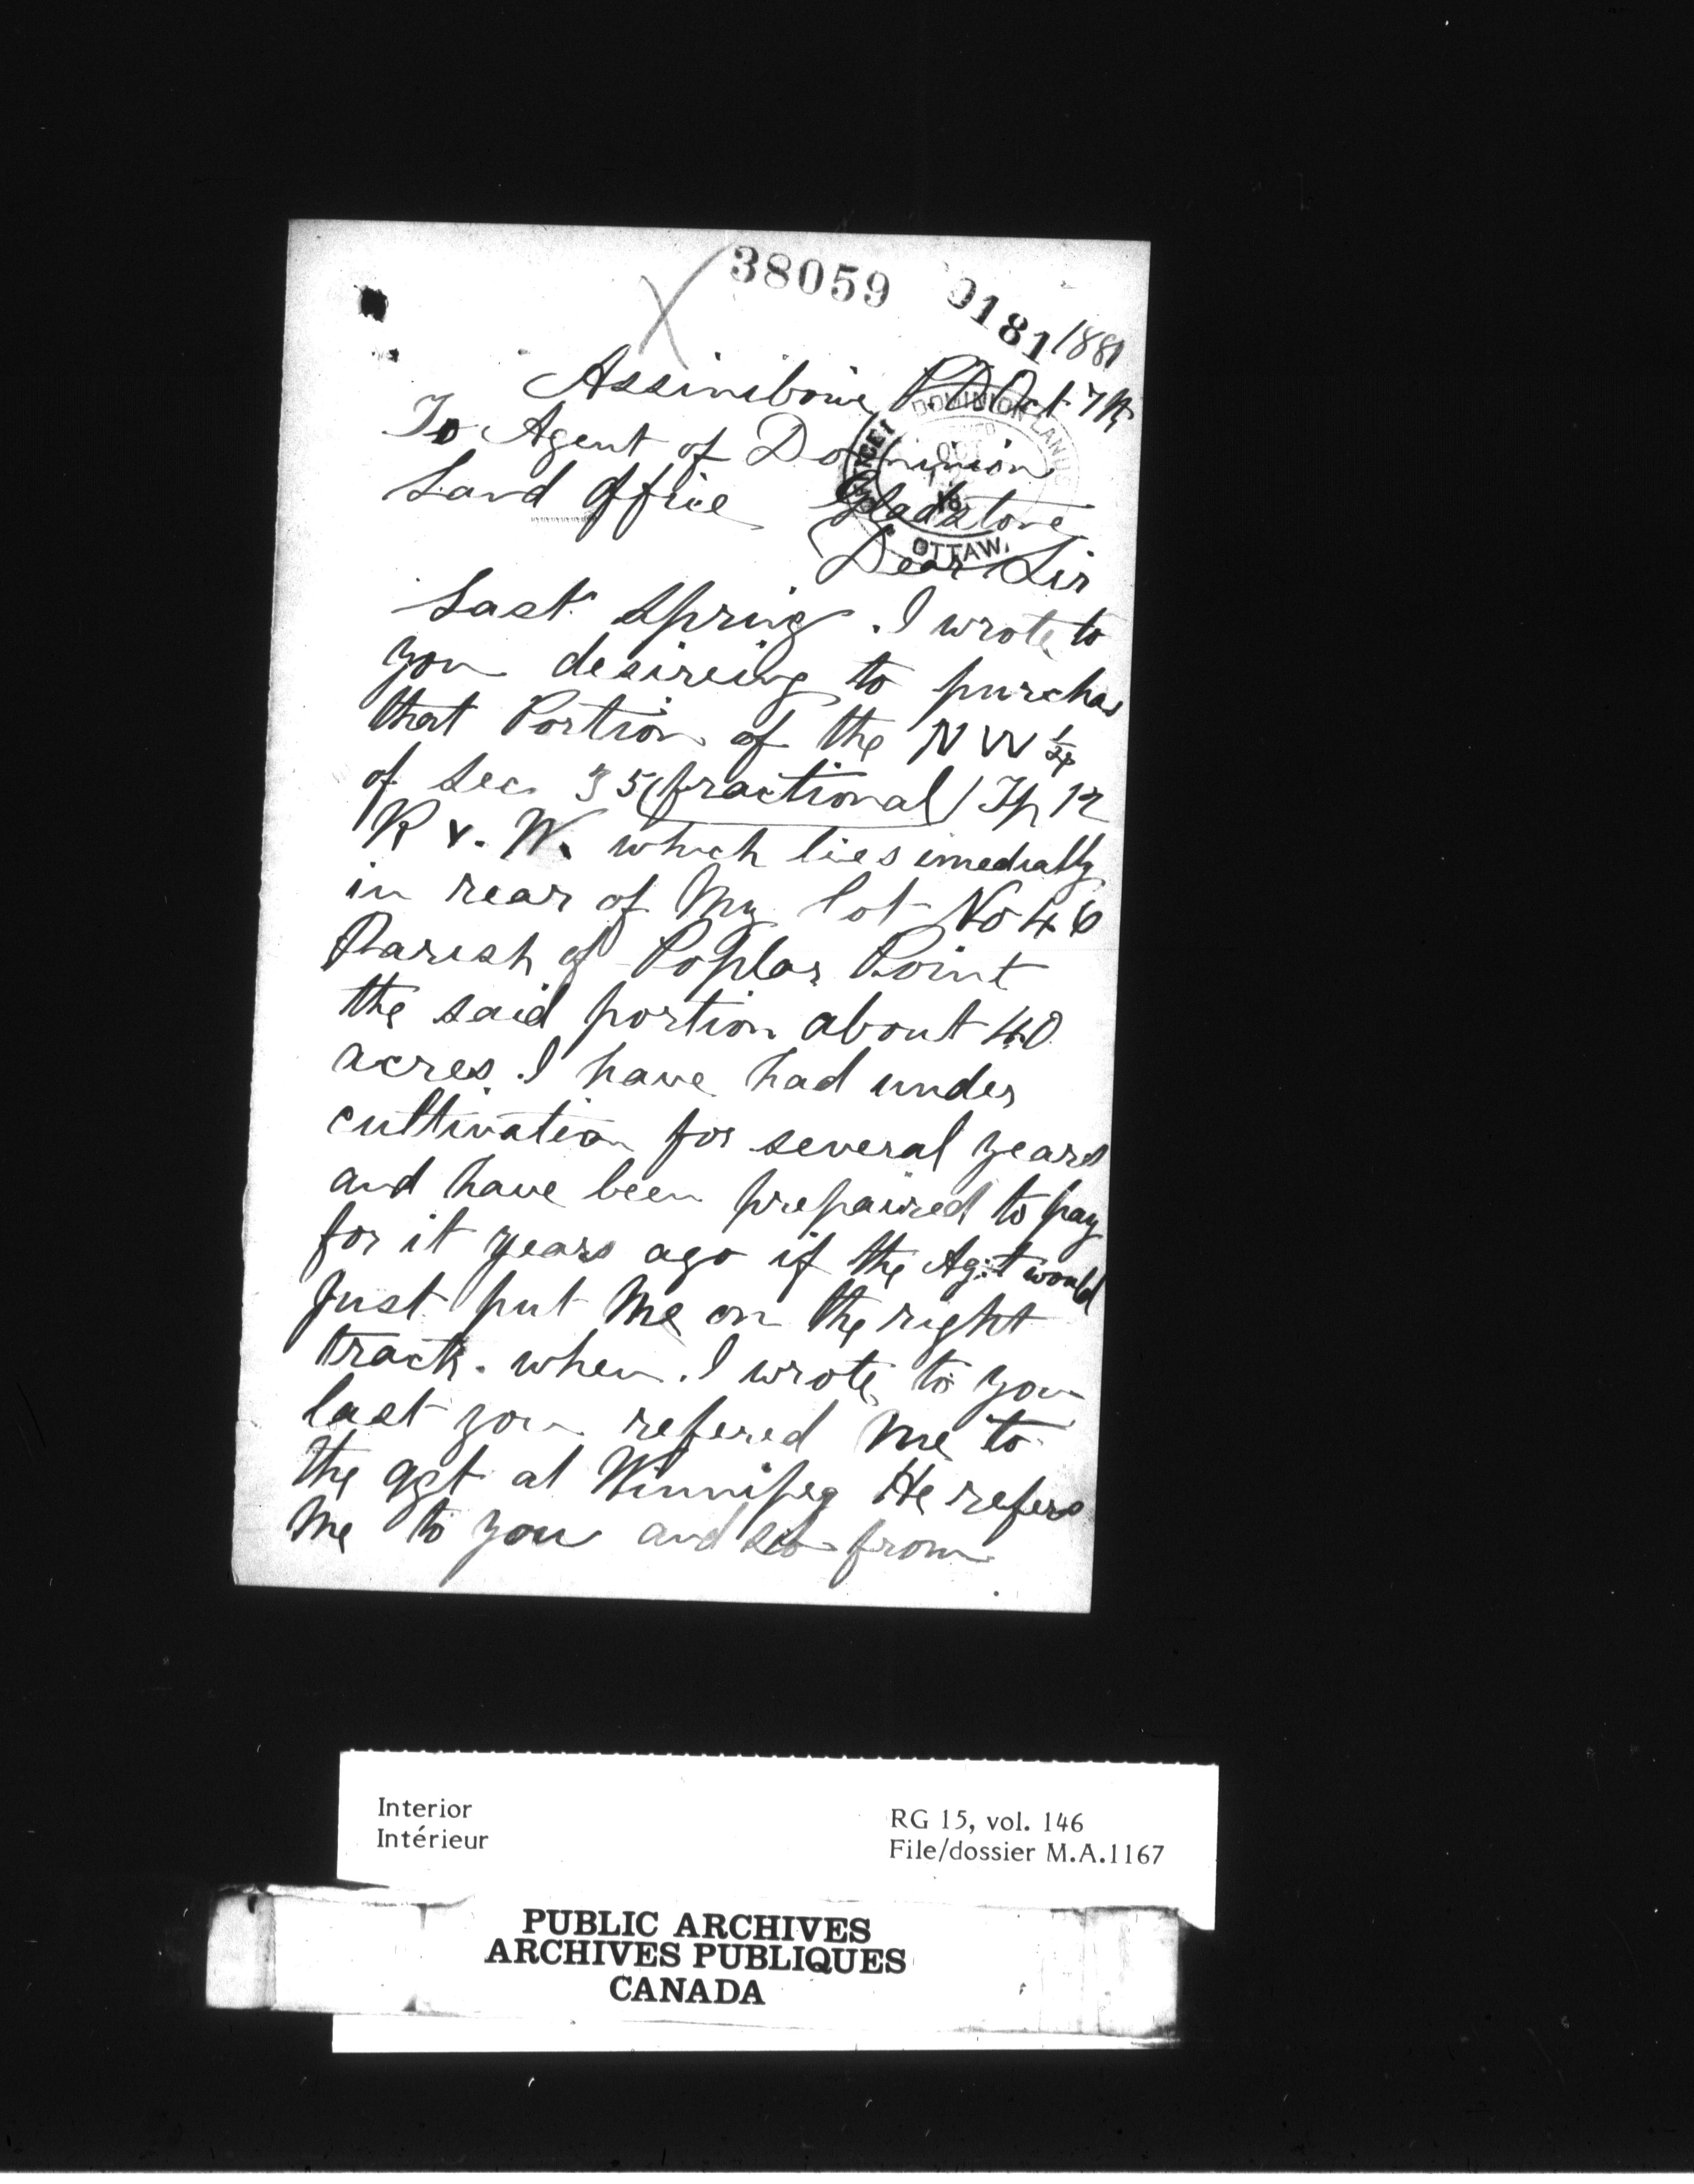 38059 9181 1881
Assiniboine P.O Oct 7th
To Agent of Dominion
Land Office Gladstone
DOMINION LANDS
OFFICE
OCT
18
OTTAWA
Dear Sir
Last Spring. I wrote to
you desireing to purchas
that Portion of the NW 1/4
of Sec 35 (fractional) Tp 12
R v. W. which lies imediatly
in rear of My lot No 46
Parish of Poplar Point
the said portion about 40
acres. I have had under
cultivation for several years
and have been prepaired to pay
for it years ago if the Agt would
Just put Me on the right
track. when. I wrote to you
last you refered Me to
the agt at Winnipeg He refers
Me to you and so from
Interior
Intérieur
RG 15, vol. 146
File/dossier M.A.1167
PUBLIC ARCHIVES
ARCHIVES PUBLIQUES
CANADA